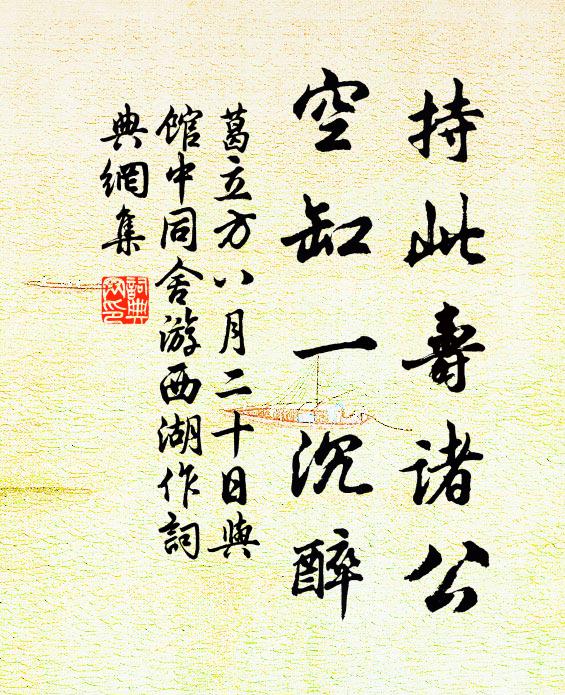 持此壽諸公
空缸一沉醉
葛立方八月二十日與
館中同舍游西湖作詞
典網集
詞典
网印